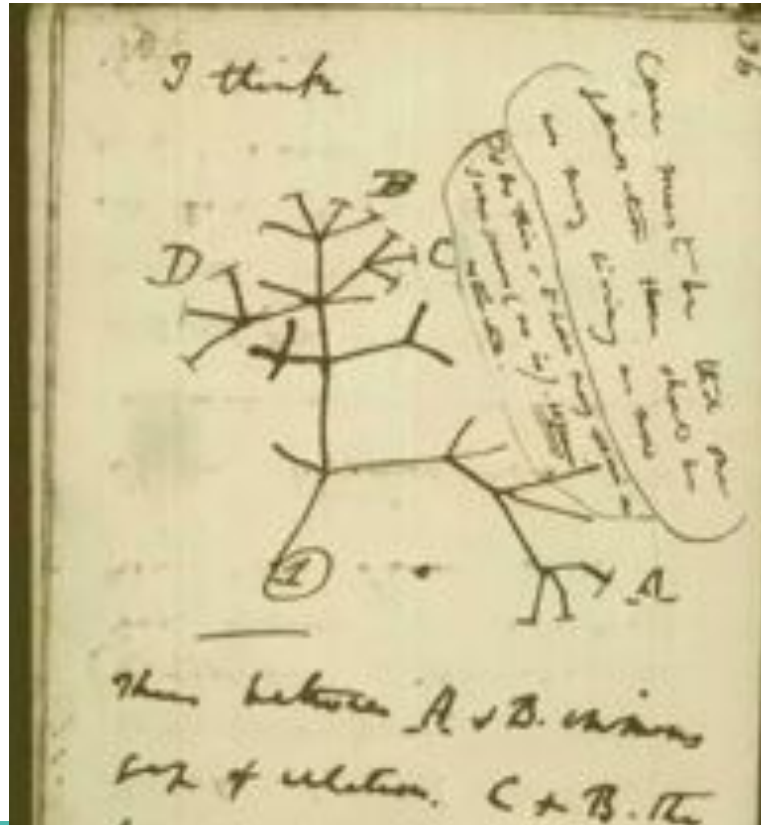 36
I think
B
D
C
A
1
Case must be that one
generation then should be
as many living as now
To do this & to have many species in
same genus (as is) requires
extinction.
Thus between A & B. immense
gap of relation. C & B. The